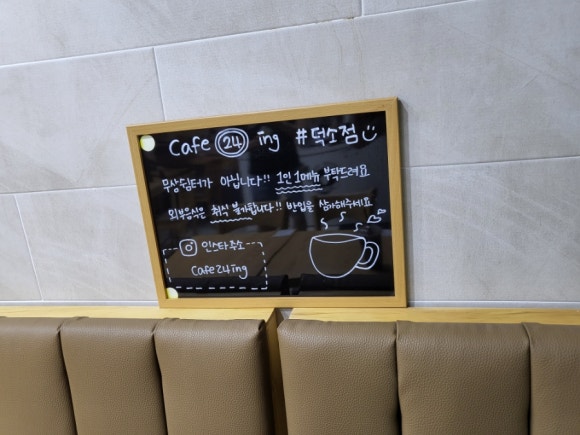 Cafe 24 ing #덕소점
무상쉼터가 아닙니다!! 1인 1메뉴 부탁드려요
외부음식은 취식 불가합니다!! 반입을 삼가해주세요
인스타주소
Cafe24ing